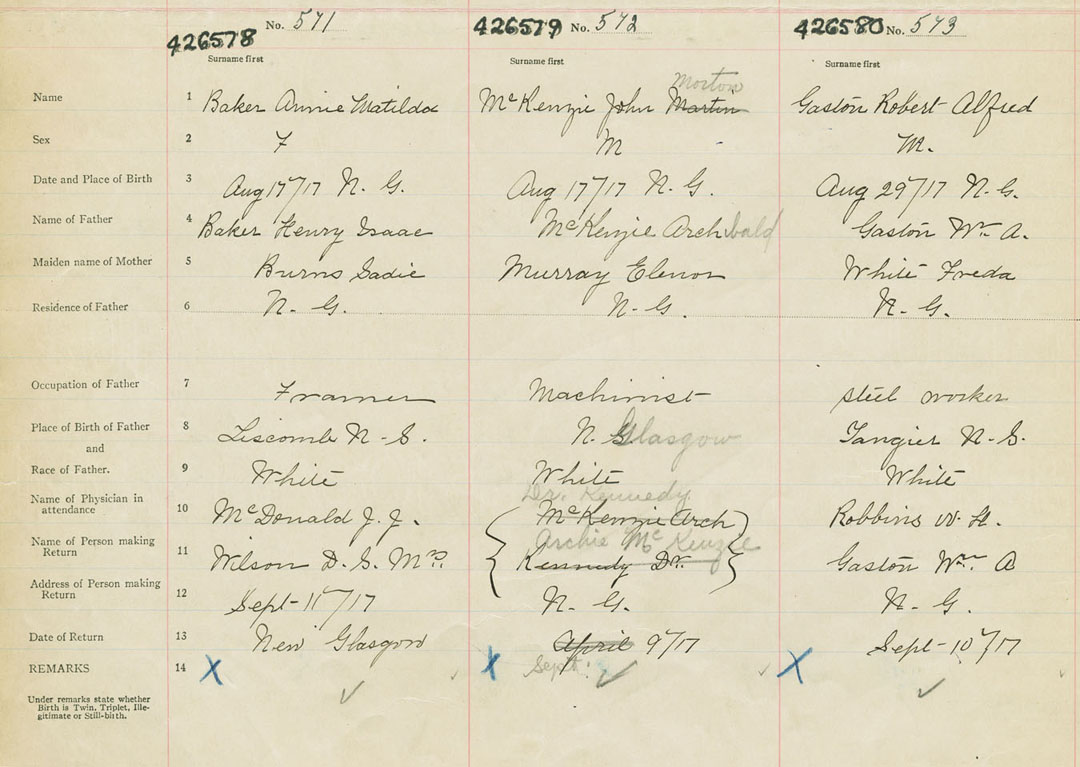 426578 No. 571 426579 No. 572 426580 No. 573
Surname first Surname first Surname first
Morton
Name 1 Baker Annie Matilda McKenzie John Martin Gaston Robert Alfred
Sex 2 F M M.
Date and Place of Birth 3 Aug 17/17 N. G. Aug 17/17 N. G. Aug 29/17 N. G.
Name of Father 4 Baker Henry Isaac McKenzie Archibald Gaston Wm A.
Maiden name of Mother 5 Burns Sadie Murray Elenor White Freda
Residence of Father 6 N. G. N. G. N. G.
Occupation of Father 7 Framer Machinist steel worker
Place of Birth of Father 8 Liscomb N-S. N. Glasgow Tangier N-S.
and
Race of Father. 9 White White White
Dr. Kennedy
Name of Physician in
attendance 10 McDonald J. J. McKenzie Arch Robbins W. H.
Archie McKenzie
Name of Person making
Return 11 Wilson D. S. Mrs. Kennedy Dr. Gaston Wm. A
Address of Person making
Return 12 Sept-11/17 N. G. N. G.
Date of Return 13 New Glasgow April 9/17 Sept-10/17
Sept.
REMARKS 14 X X X
Under remarks state whether
Birth is Twin, Triplet, Ille-
gitimate or Still-birth.